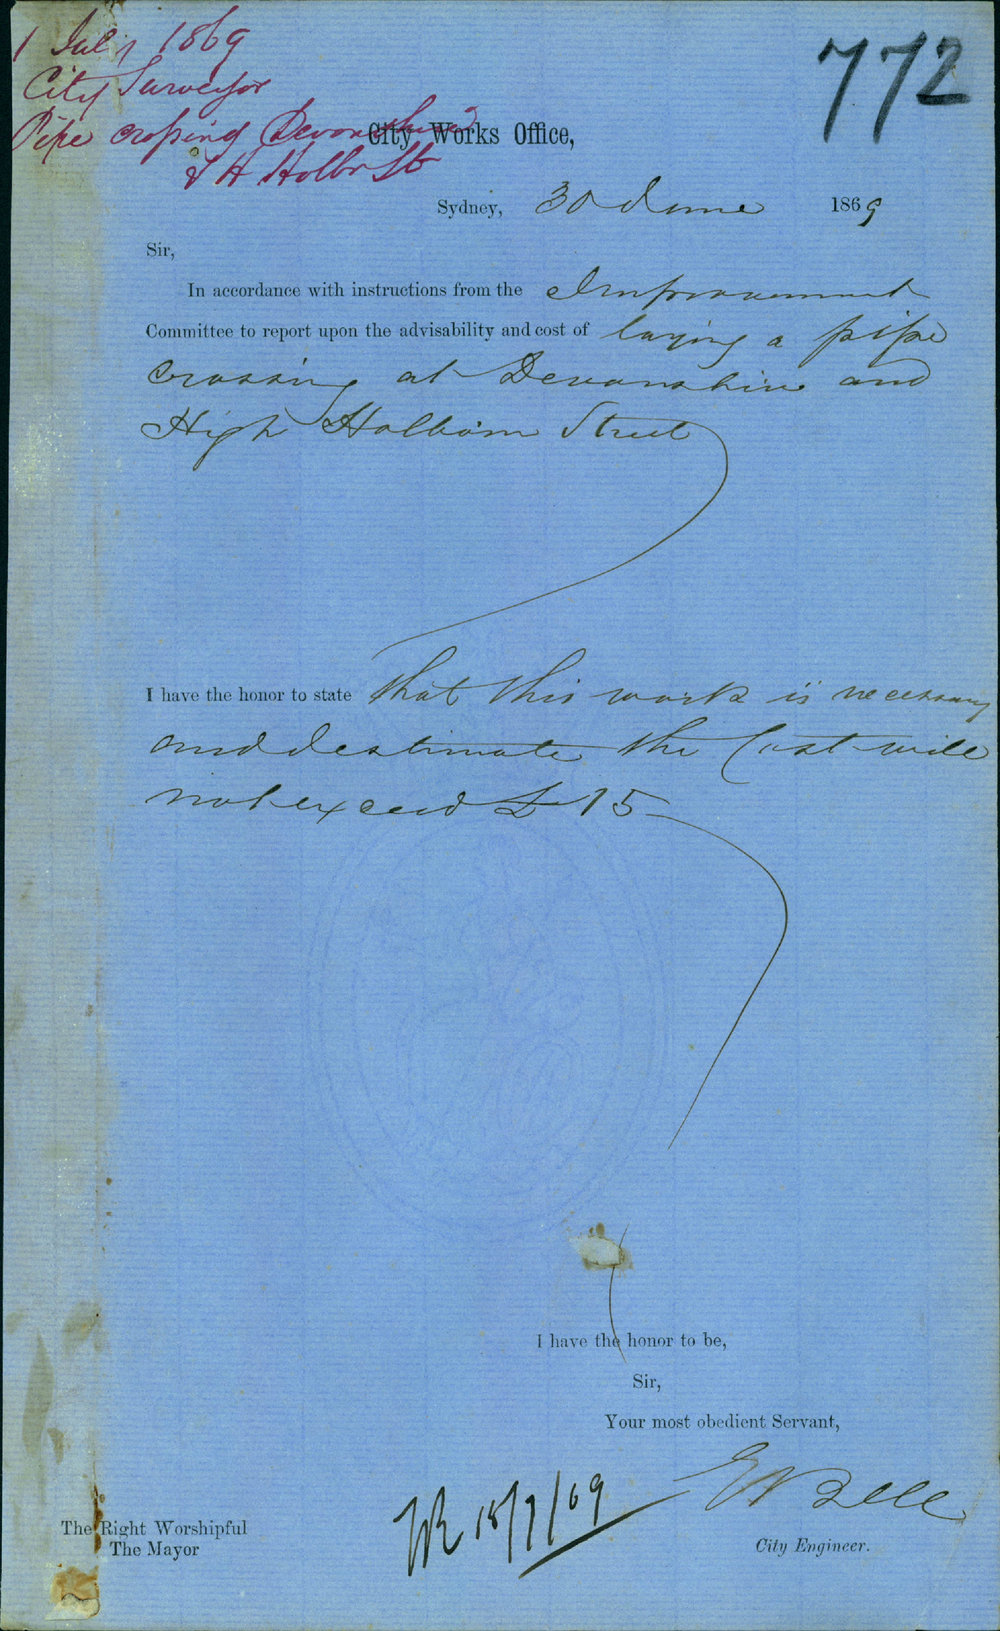 1 July 1869
City Surveyor
Pipe crossing Devonshire
& H Holbn St
772
City Works Office,
Sydney, 30 June 1869
Sir,
In accordance with instructions from the Improvement
Committee to report upon the advisability and cost of laying a pipe
crossing at Devonshire and
High Holborn Street
I have the honor to state that this work is necessary
and I estimate the Cost will
not exceed £15
I have the honor to be,
Sir,
Your most obedient Servant,
E Bell
City Engineer.
15/7/69
The Right Worshipful
The Mayor